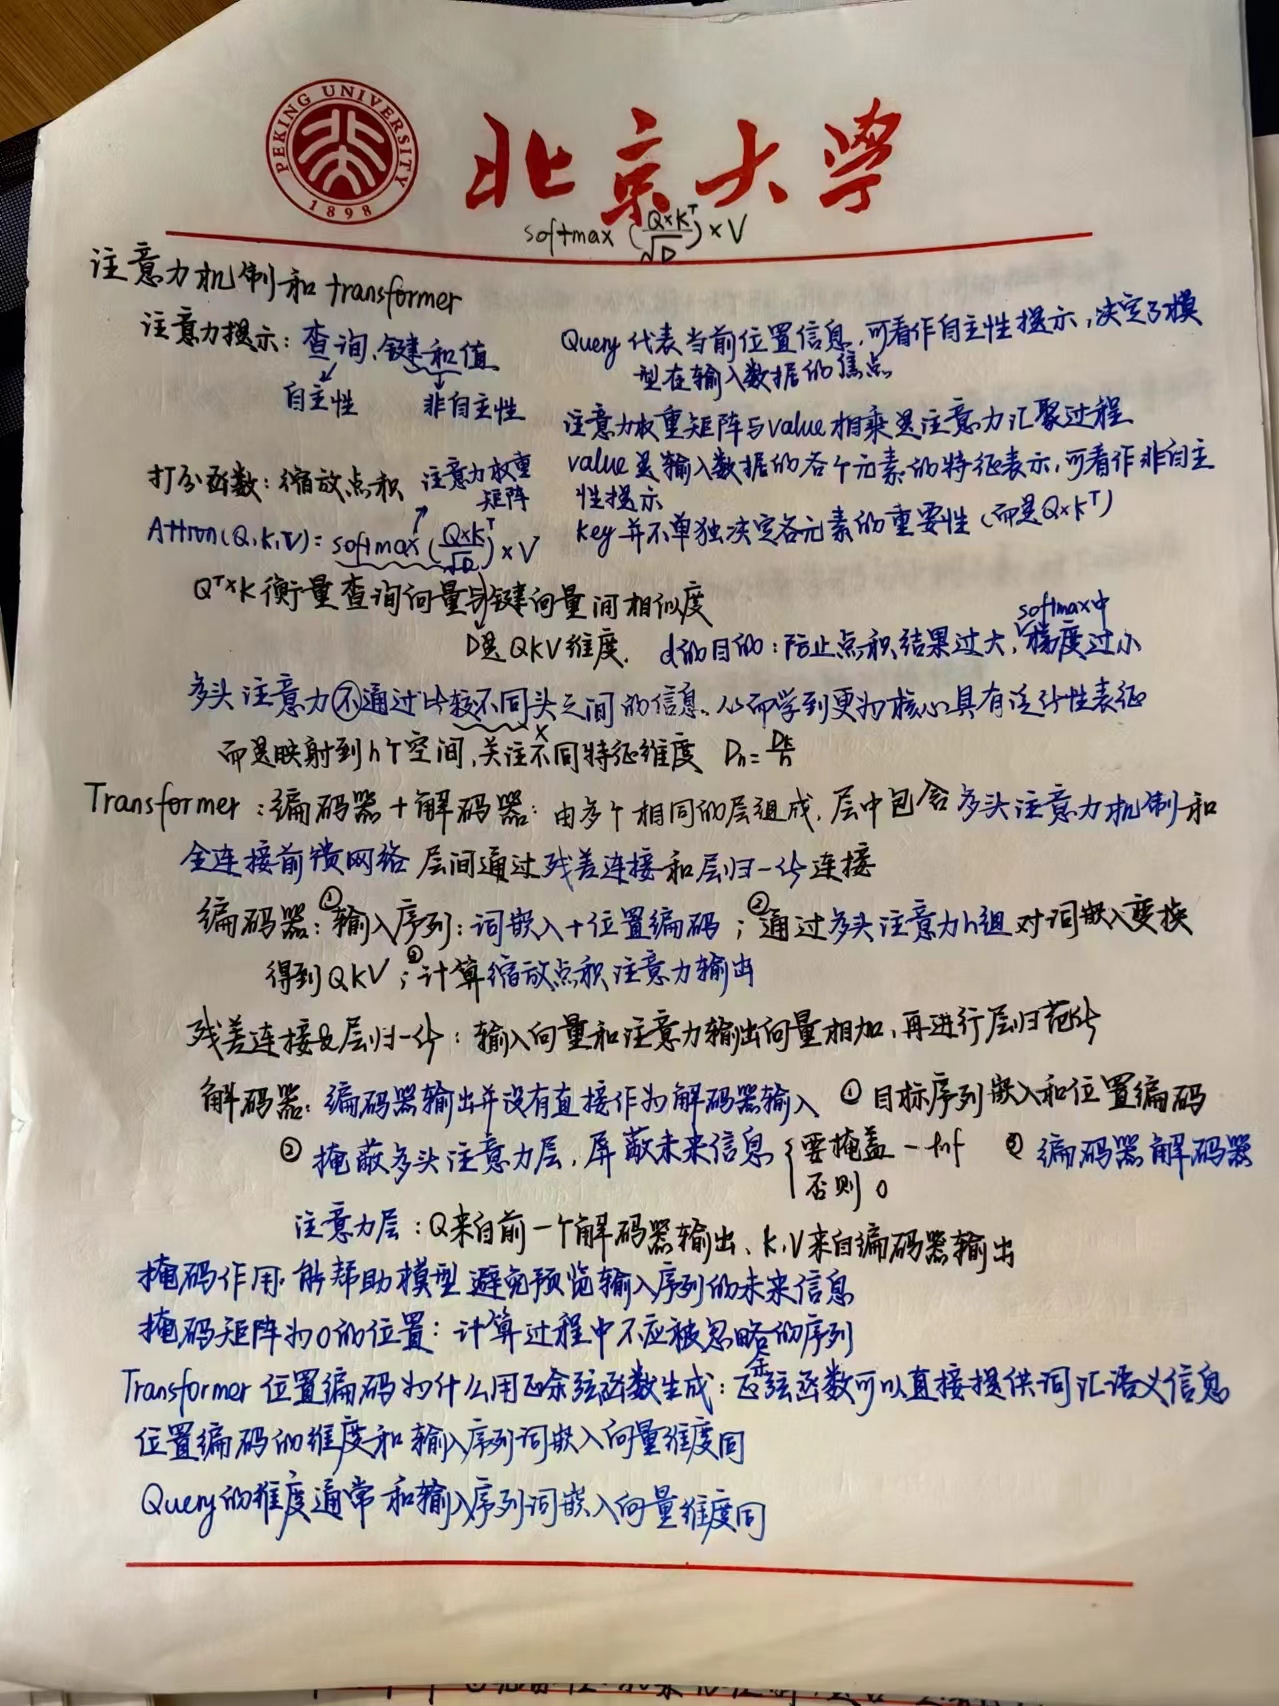 PEKING UNIVERSITY
1898
北京大学
softmax (Q×K^T/√D)×V
注意力机制和transformer
注意力提示：查询、键和值
自主性 非自主性
Query代表当前位置信息，可看作自主性提示，决定了模
型在输入数据的焦点
注意力权重矩阵与value相乘是注意力汇聚过程
value是输入数据的各个元素的特征表示，可看作非自主
性提示
key并不单独决定各元素的重要性（而是Q×K^T）
打分函数：缩放点积 注意力权重
矩阵
Attron(Q,K,V)= softmax (Q×K^T/√D)×V
Q^T×K衡量查询向量与键向量间相似度
D是QKV维度. d的目的：防止点积结果过大，softmax中梯度过小
多头注意力不通过比较不同头之间的信息、从而学到更为核心具有泛化性表征
而是映射到h个空间，关注不同特征维度
Transformer：编码器+解码器：由多个相同的层组成，层中包含多头注意力机制和
全连接前馈网络 层间通过残差连接和层归一化连接
编码器：①输入序列：词嵌入+位置编码；②通过多头注意力h组对词嵌入变换
得到QKV；③计算缩放点积注意力输出
残差连接及层归一化：输入向量和注意力输出向量相加，再进行层归范化
解码器：编码器输出并没有直接作为解码器输入 ①目标序列嵌入和位置编码
②掩蔽多头注意力层，屏蔽未来信息{要掩盖 -inf ③编码器解码器
否则 0
注意力层：Q来自前一个解码器输出、K,V来自编码器输出
掩码作用.能帮助模型避免预览输入序列的未来信息
掩码矩阵为0的位置：计算过程中不应被忽略的序列
Transformer位置编码为什么用正余弦函数生成：正余弦函数可以直接提供词汇语义信息
位置编码的维度和输入序列词嵌入向量维度同
Query的维度通常和输入序列词嵌入向量维度同